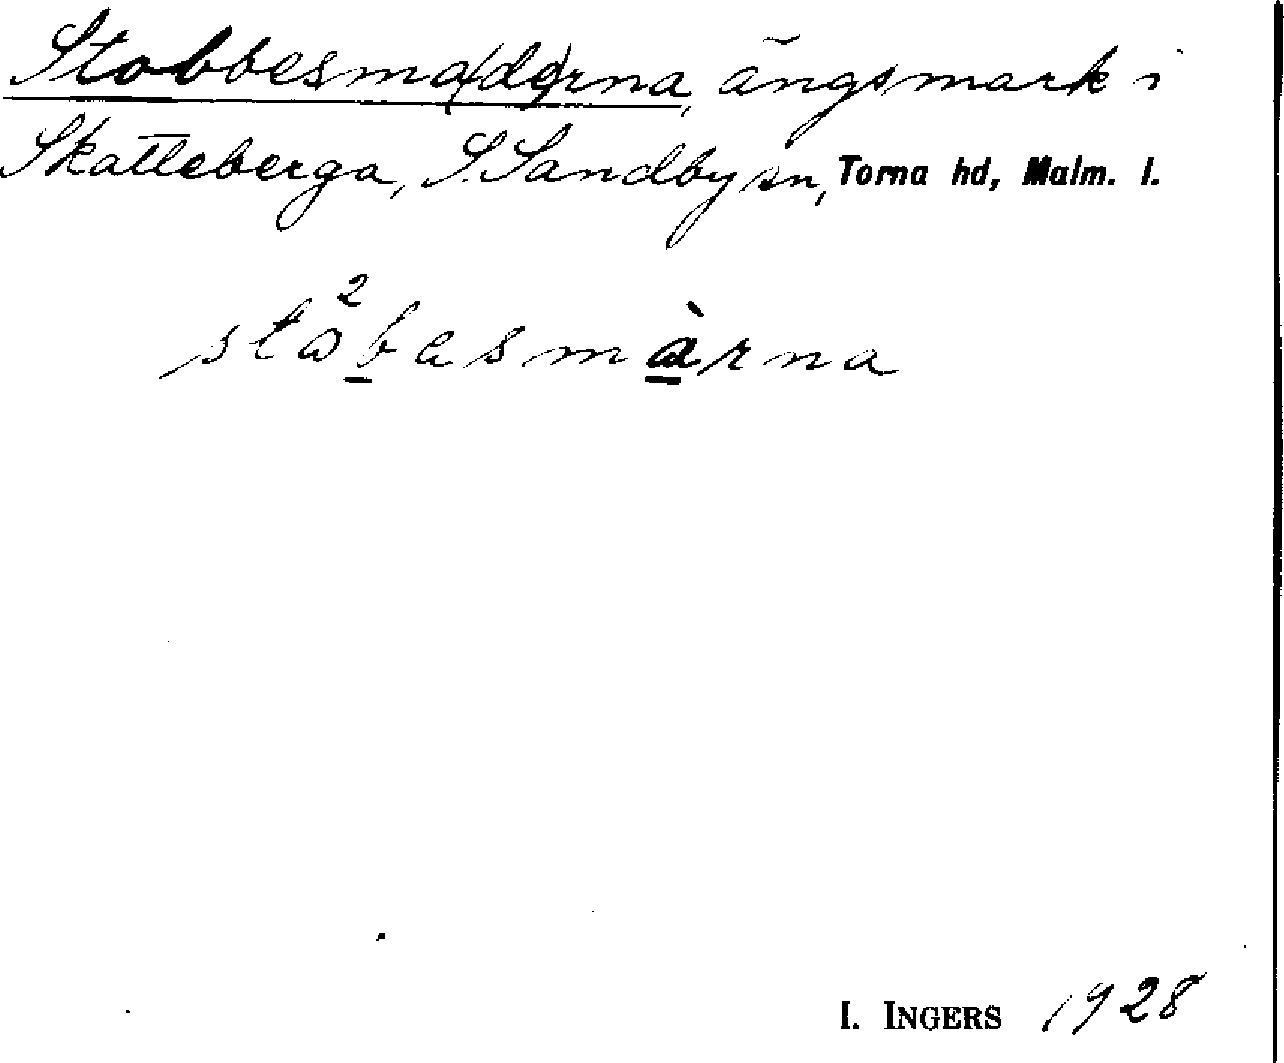 Stobbesma(de)rna, ängsmark i
Skatteberga, S. Sandby sn, Torna hd, Malm. l.
stω²b̲asmà̲rna
I. INGERS 1928